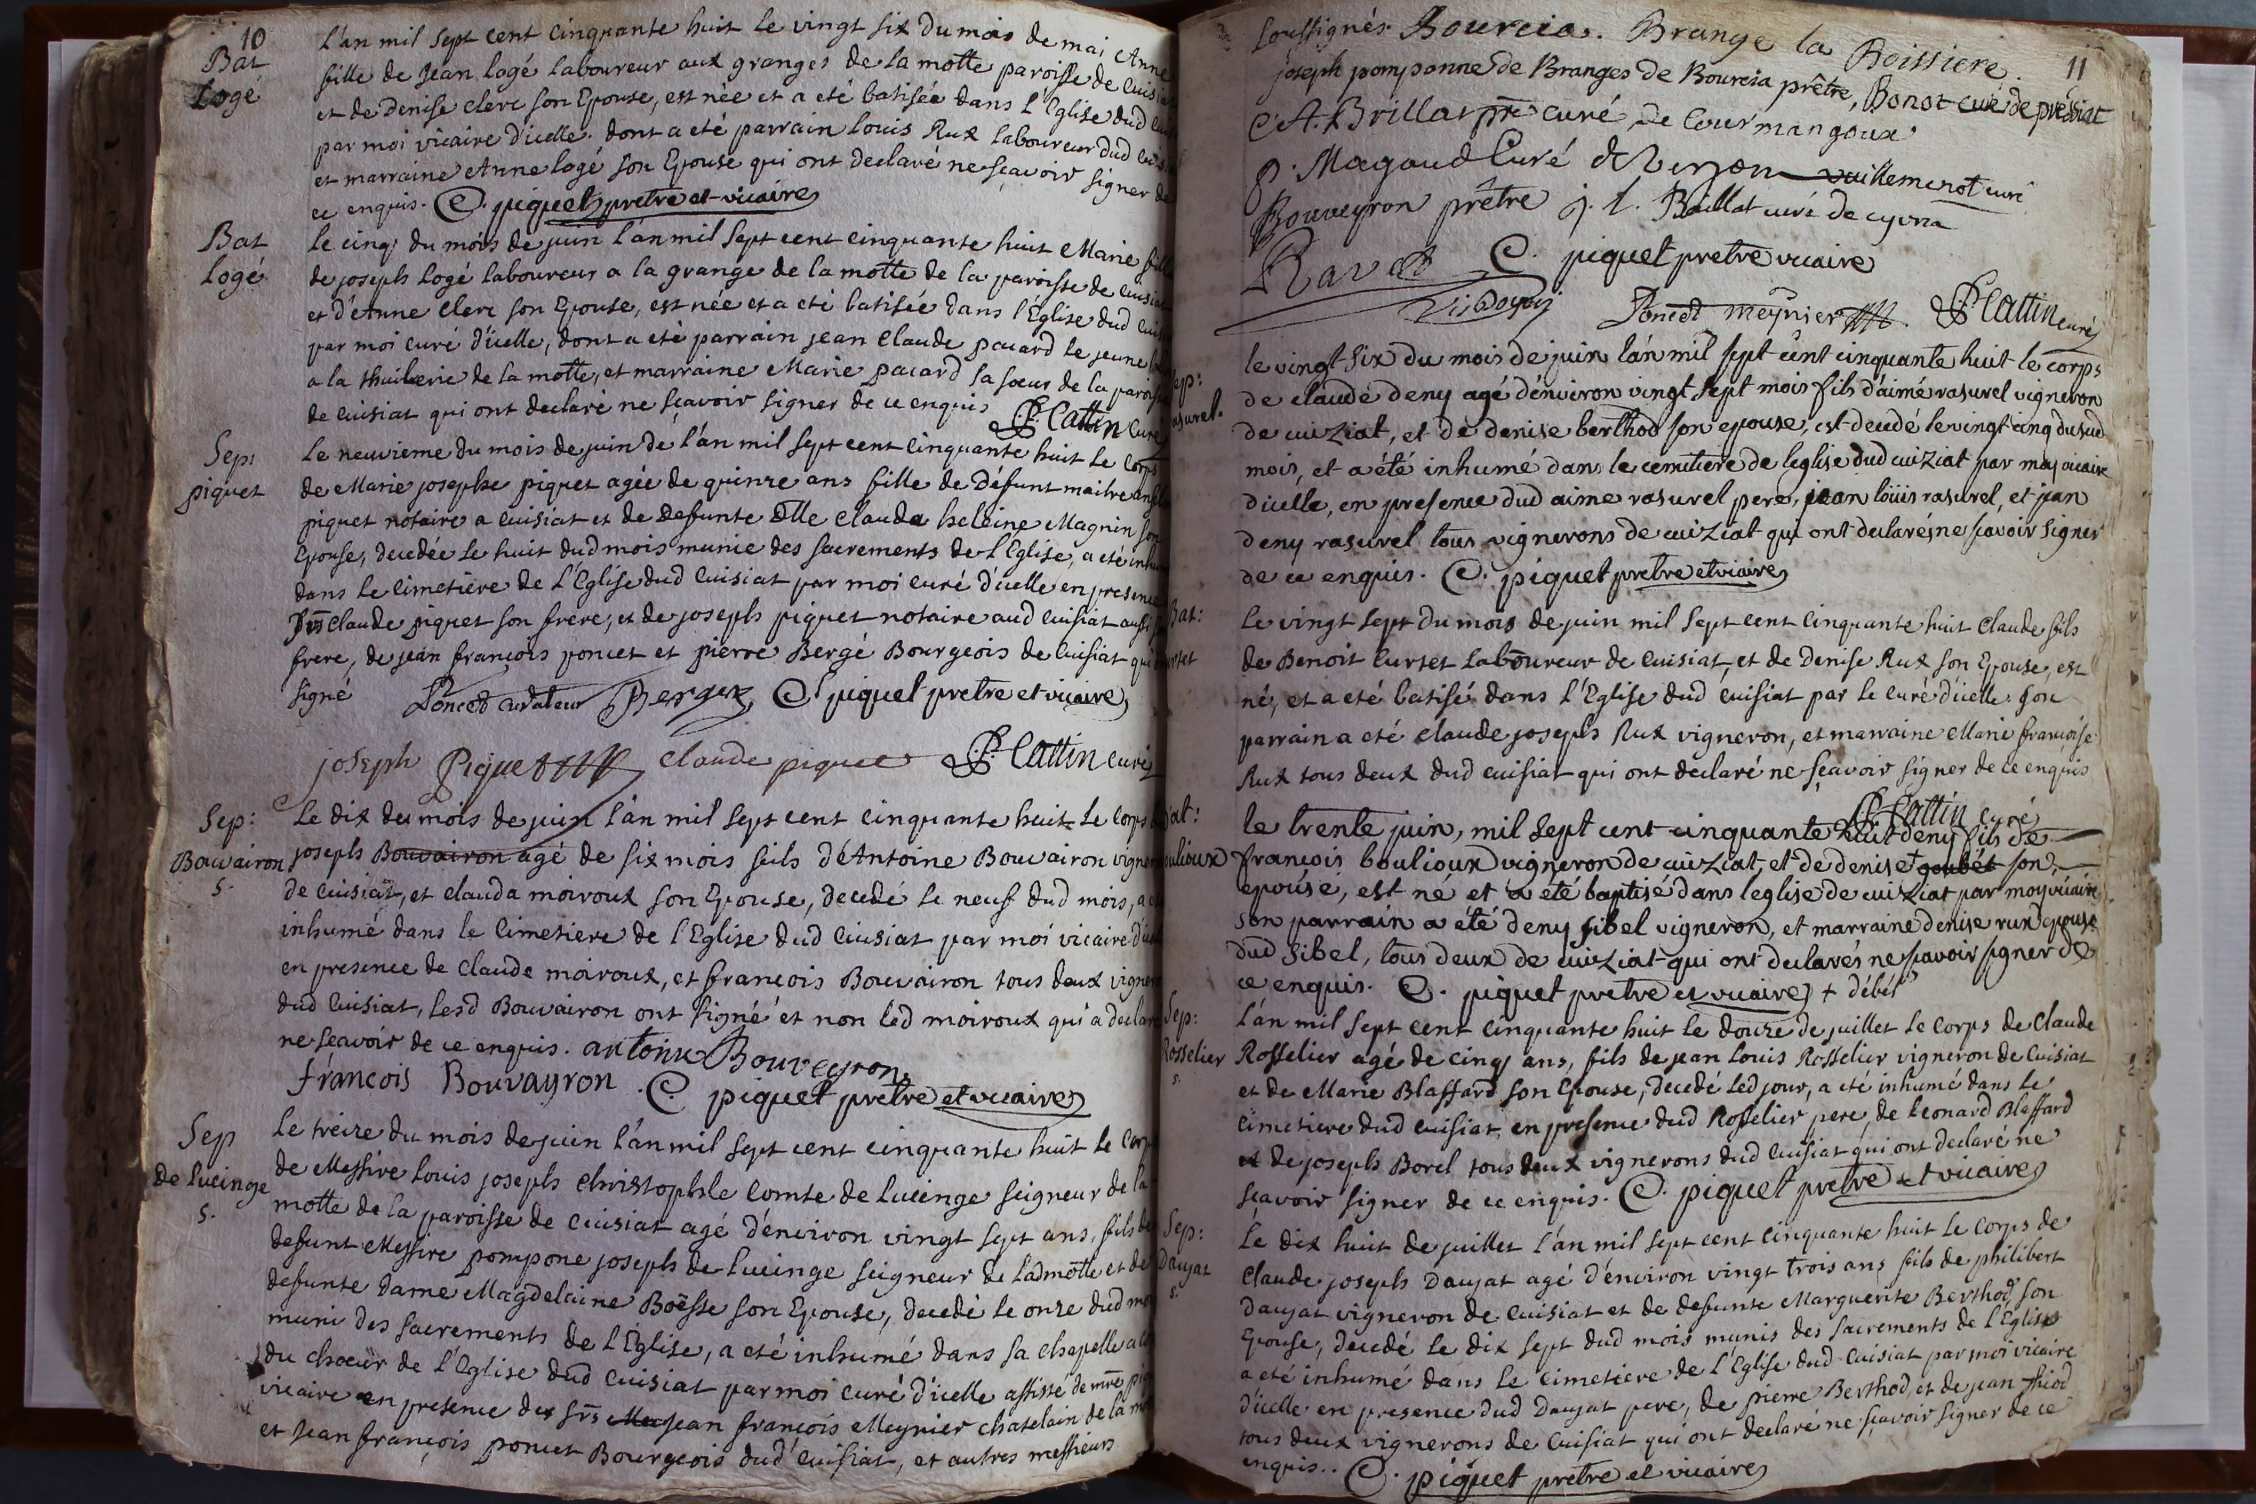 10
Bat
Logé
L'an mil sept cent cinquante huit le vingt six du mois de mai Anne
fille de Jean logé laboureur aux granges de la motte paroisse de Cuisiat
et de Denise clerc son Epouse, est née et a eté batisée dans l'Eglise dud
par moi vicaire d'icelle. dont a eté parrain louis Rux laboureur dud
et marraine Anne logé son Epouse qui ont declaré ne sçavoir signer de
ce enquis. C. piquet pretre et vicaire
Bat
Logé
le cinq du mois de juin l'an mil sept cent cinquante huit Marie fille
de joseph Logé laboureur a la grange de la motte de la paroisse de cuisiat
et d'Anne Clerc son Epouse, est née et a eté batisée dans l'Eglise dud
par moi curé d'icelle, dont a eté parrain jean Claude pacard le jeune
a la thuilerie de la motte, et marraine Marie pacard sa soeur de la paroisse
de cuisiat qui ont declaré ne sçavoir signer de ce enquis P. Cattin Curé
Sep:
piquet
Le neuvieme du mois de juin de l'an mil sept cent cinquante huit le corps
de Marie josephe piquet agée de quinze ans fille de Défunt maitre
piquet notaire a cuisiat et de Defunte Dlle Clauda heleine Magnin son
Epouse, decedée le huit dud mois munie des sacrements de l'Eglise, a eté
dans le cimetière de l'Eglise dud Cuisiat par moi curé d'icelle en presence
Claude piquet son frere, et de joseph piquet notaire aud Cuisiat aussi
frere, de jean françois poncet et pierre Bergé Bourgeois de Cuisiat qui
signé Poncet curateur Berger C. piquet pretre et vicaire
joseph Piquet claude piquet P. Cattin curé
Sep:
Bouvairon
s.
Le dix du mois de juin l'an mil sept cent cinquante huit le corps
joseph Bouvairon agé de six mois fils d'Antoine Bouvairon
de cuisiat, et clauda moiroux son Epouse, decedé le neuf dud mois,
inhumé dans le Cimetiere de l'Eglise dud Cuisiat par moi vicaire
en presence de Claude moiroux, et françois Bouvairon tous deux
dud Cuisiat, lesd Bouvairon ont signé et non led moiroux qui a declaré
ne sçavoir de ce enquis. antoine Bouveyron
francois Bouvayron. C. piquet pretre et vicaire
Sep
de Lucinge
s.
Le treize du mois de juin l'an mil sept cent cinquante huit le
de Messire Louis joseph christophle Comte de Lucinge seigneur de la
motte de la paroisse de cuisiat agé d'environ vingt sept ans, fils de
defunt Messire pompone joseph de Lucinge seigneur de ladmotte et de
defunte dame Magdelaine Boësse son Epouse, decedé le onze dud
muni des sacrements de l'Eglise, a eté inhumé dans sa chapelle
du choeur de l'Eglise dud Cuisiat par moi curé d'icelle assisté de mre
vicaire en presence des srs jean françois Meynier chatelain de la
et jean françois poncet Bourgeois dud Cuisiat, et autres messieurs
11
soussignés. Bourcia. Brange la Boissiere.
joseph pomponne de Branges de Bourcia prêtre, Bonot curé de pressiat
C. A. Brillat pre curé de Courmangoux
P. Magaud Curé de Verjon vuillemenot curé
Bouveyron prêtre j. l. Baillat curé de cyvria
Ravet C. piquet pretre vicaire
Poncet meynier P. Cattin curé
Sep:
le vingt six du mois de juin l'an mil sept cent cinquante huit le corps
de claude deny agé d'environ vingt sept mois fils d'aimé rasurel vigneron
de cuiziat, et de denise berthod son epouse, est decedé le vingt cinq dusud
mois, et a été inhumé dans le cemitiere de leglise dud cuiziat par moy vicaire
d'icelle, en presence dud aimé rasurel pere, jean loüis rasurel, et jean
deny rasurel tous vignerons de cuiziat qui ont declarés ne sçavoir signer
de ce enquis. C. piquet pretre et vicaire
Bat:
Le vingt sept du mois de juin mil sept cent cinquante huit Claude fils
de Benoit Curtet laboureur de Cuisiat, et de Denise Rux son Epouse, est
né, et a eté batisé dans l'Eglise dud cuisiat par le curé d'icelle. son
parrain a eté claude joseph Rux vigneron, et marraine Marie françoise
Rux tous deux dud cuisiat qui ont declaré ne sçavoir signer de ce enquis
P. Cattin curé
le trente juin, mil sept cent cinquante huit deny fils de
françois boulioux vigneron de cuiziat, et de denise + goubet son
epouse, est né et a été baptisé dans leglise de cuiziat par moy vicaire
son parrain a été deny sibel vigneron, et marraine denise rux epouse
dud sibel, tous deux de cuiziat qui ont declarés ne sçavoir signer de
ce enquis. C. piquet pretre et vicaire + débét
Sep:
Rosselier
s.
L'an mil sept cent cinquante huit le douze de juillet le corps de Claude
Rosselier agé de cinq ans, fils de jean louis Rosselier vigneron de Cuisiat
et de Marie Blaffard son Epouse, decedé led jour, a eté inhumé dans le
cimetiere dud cuisiat, en presence dud Rosselier pere, de Leonard Blaffard
et de joseph Borel tous deux vignerons dud Cuisiat qui ont declaré ne
sçavoir signer de ce enquis. C. piquet pretre et vicaire
Sep:
Daujat
s.
Le dix huit de juillet l'an mil sept cent cinquante huit le corps de
Claude joseph Daujat agé d'environ vingt trois ans fils de philibert
Daujat vigneron de cuisiat et de defunte Marguerite Berthod son
Epouse, decedé le dix sept dud mois munis des sacrements de l'Eglise
a eté inhumé dans le Cimetiere de l'Eglise dud Cuisiat par moi vicaire
d'icelle en presence dud Daujat pere, de pierre Berthod, et de jean
tous deux vignerons de Cuisiat qui ont declaré ne sçavoir signer de ce
enquis.. C. piquet pretre et vicaire